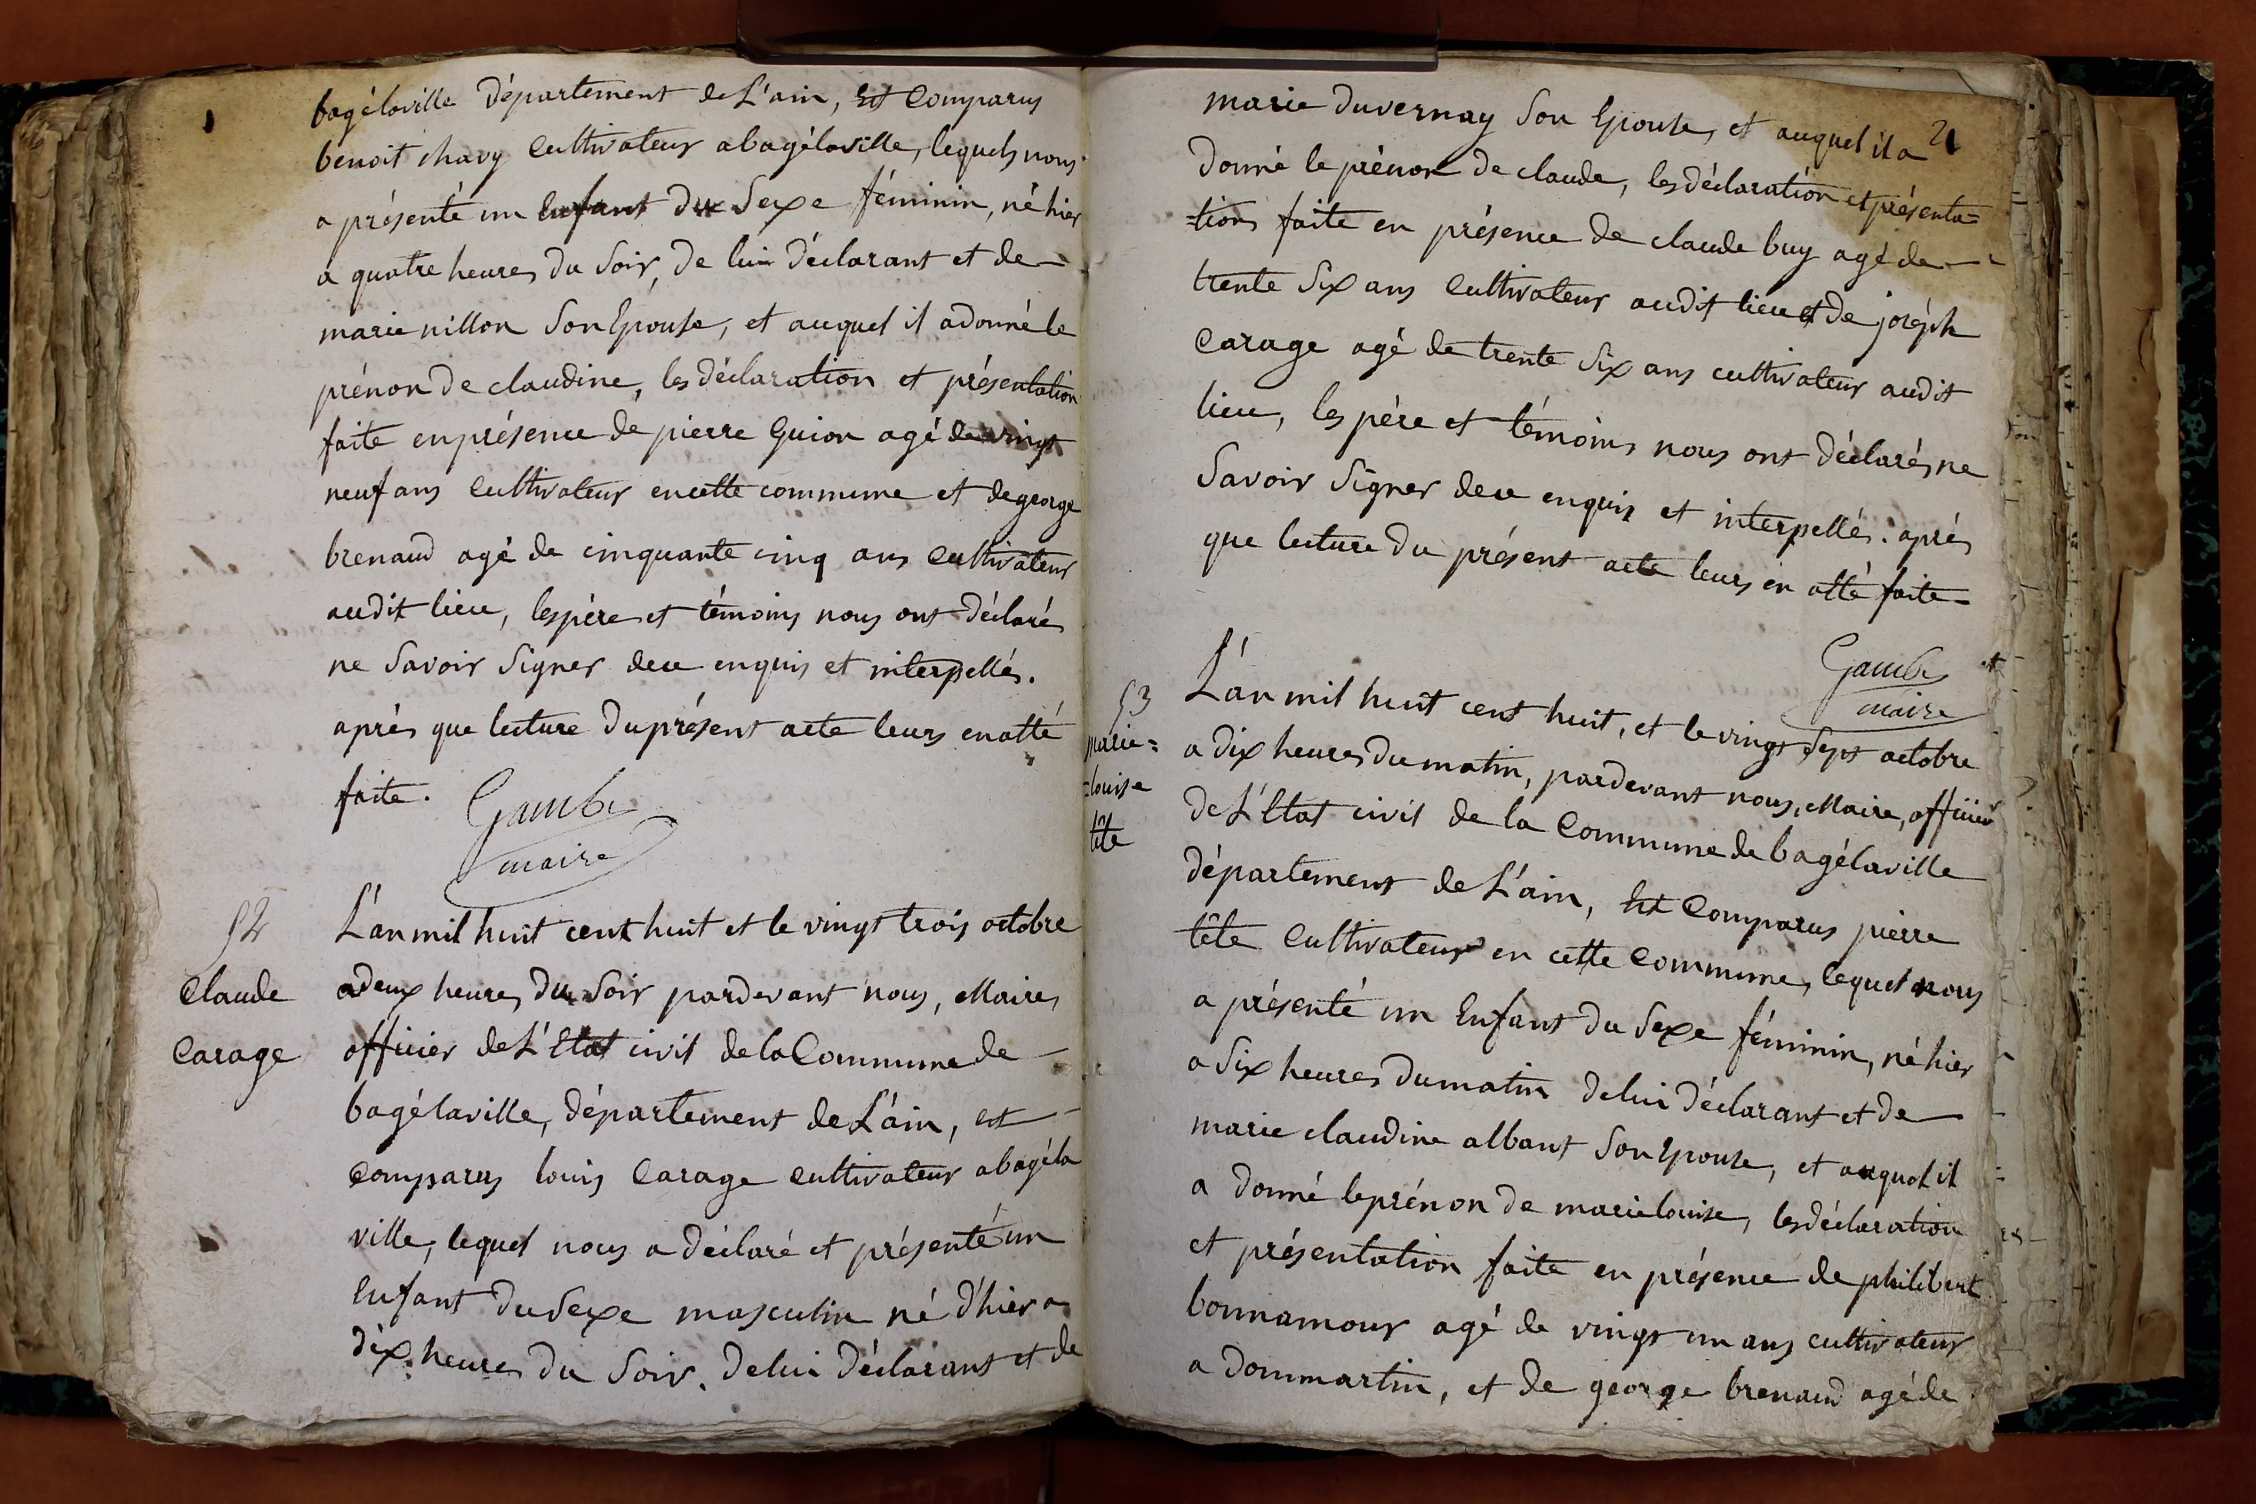 bagélaville département de L'ain, Est Comparus
benoit chavy Cultivateur abagélaville, lequels nous
a présenté un Enfant du Sexe féminin, né hier
a quatre heures du Soir, de lui déclarant et de
marie nillon Son Epouse, et auquel il adonné le
prénon de claudine, les déclaration et présentation
faite enprésence de pierre Guion agé de vingt
neuf ans Cultivateur encette commune et de george
brenaud agé de cinquante cinq ans Cultivateur
audit lieu, les père et témoins nous ont déclaré
ne Savoir Signer deu enquis et interpellés.
après que lecture du présent acte leurs enatté
faite.
Gambe
maire
52
Claude
Carage
L'an mil huit cent huit et le vingt trois octobre
adeux heures du Soir pardevant nous, Maire,
officier de L'Etat civil de la Commune de
bagélaville, département de L'ain, est
Comparus louis Carage Cultivateur abagéla
ville, lequel nous a déclaré et présenté un
Enfant du Sexe masculin né d'hier a
dix heures du Soir, de lui déclarant et de
21
marie duvernay Son Epouse, et auquel il a
donné le prénon de claude, les déclaration et présenta=
=tion faite en présence de claude buy agé de
trente Six ans Cultivateur audit lieu et de joseph
Carage agé de trente Six ans cultivateur audit
lieu, les père et témoins nous ont déclarés ne
Savoir Signer deu enquis et interpellés. après
que lecture du présent acte leurs en atté faite=
Gambe
maire
53
marie=
=louise
tête
L'an mil huit cent huit, et le vingt Sept octobre
a dix heures du matin, pardevant nous, Maire, officier
de L'Etat civil de la Commune de bagélaville
département de L'ain, Est Comparus pierre
tête Cultivateur en cette Commune, lequel nous
a présenté un Enfant du Sexe féminin, né hier
a Six heures dumatin delui déclarant et de
marie claudine albant Son Epouse, et auquel il
a donné le prénon de marie louise, les déclaration
et présentation faite en présence de philibert
bonnamour agé de vingt un ans cultivateur
a dommartin, et de george brenaud agé de